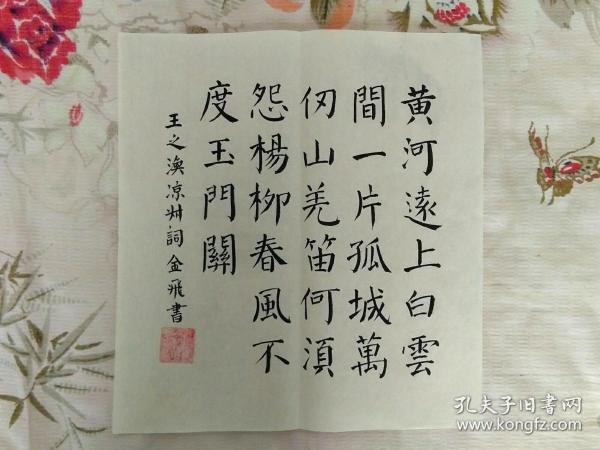 黄河遠上白雲
間一片孤城萬
仞山羌笛何須
怨楊柳春風不
度玉門關
王之渙凉州詞金飛書
孔夫子旧书网
www.kongfz.com